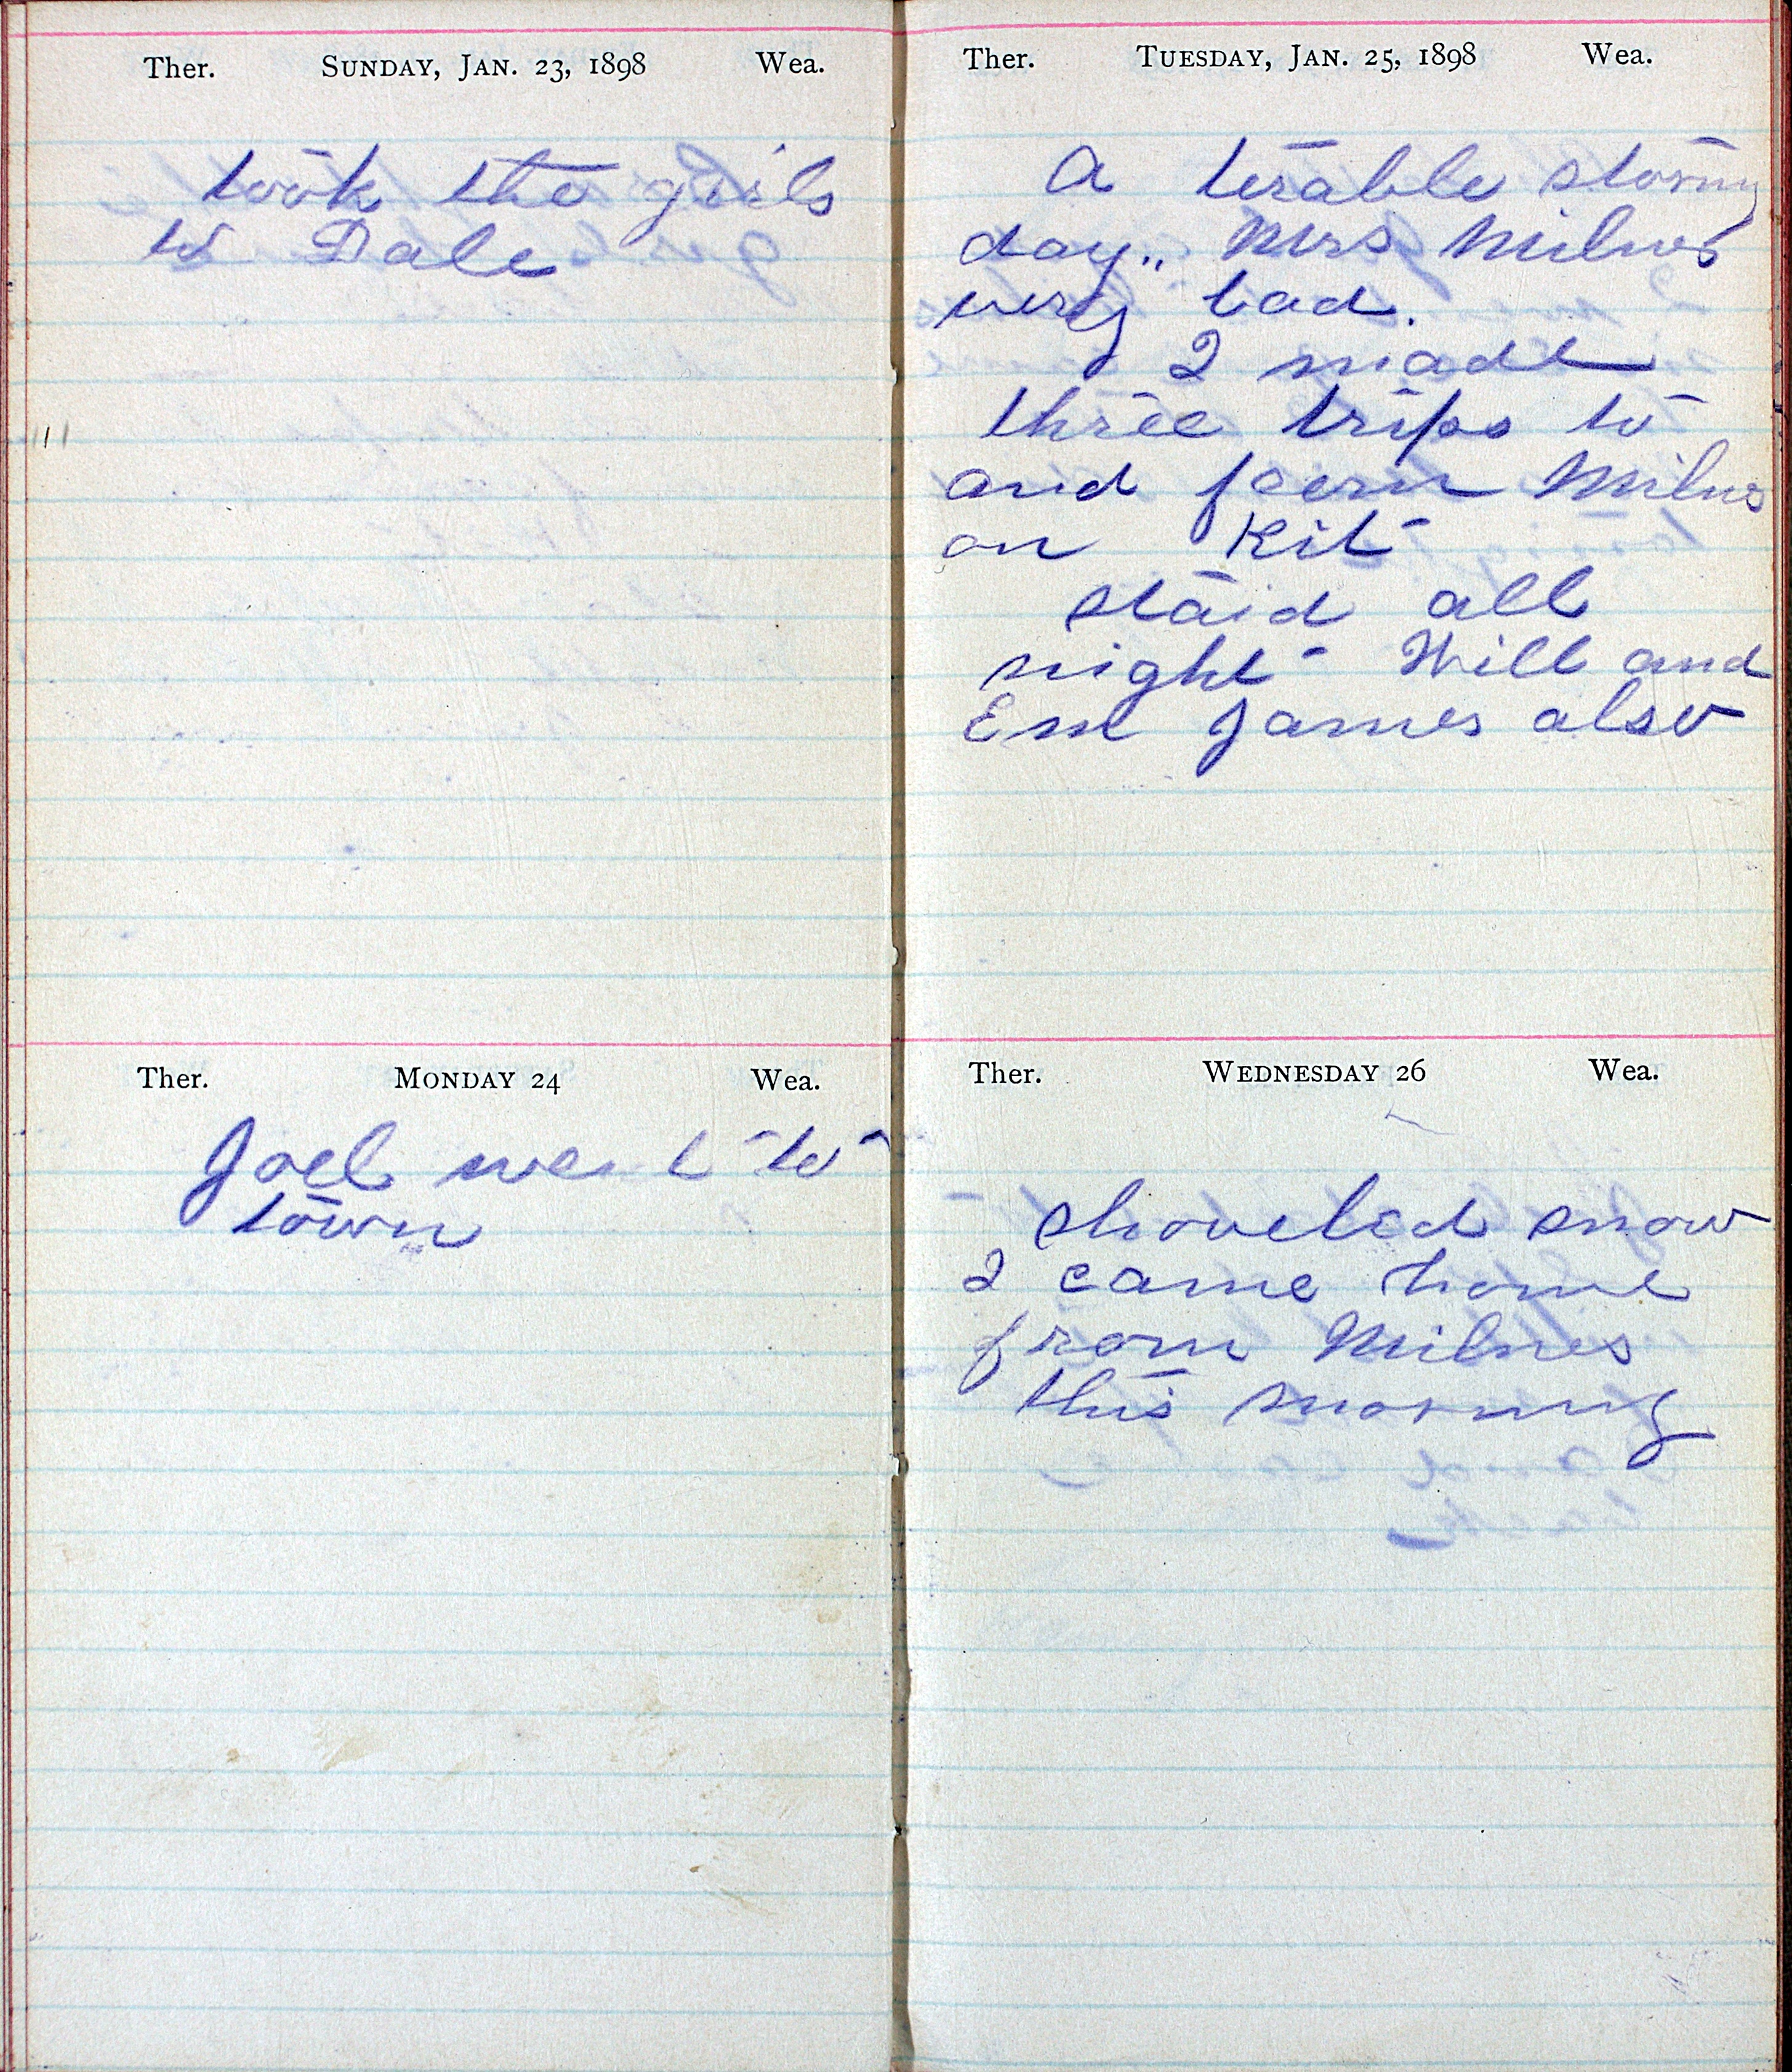 Ther. SUNDAY, JAN. 23, 1898 Wea.
took the girls
to Dale
Ther. MONDAY 24 Wea.
Joel went to
town
Ther. TUESDAY, JAN. 25, 1898 Wea.
A terable stormy
day,, Mrs Milnes
very bad.
I made
three trips to
and feern Milnes
on Kit
staid all
night Will and
Em James also
Ther. WEDNESDAY 26 Wea.
shoveled snow
I came home
from Milnes
this morning